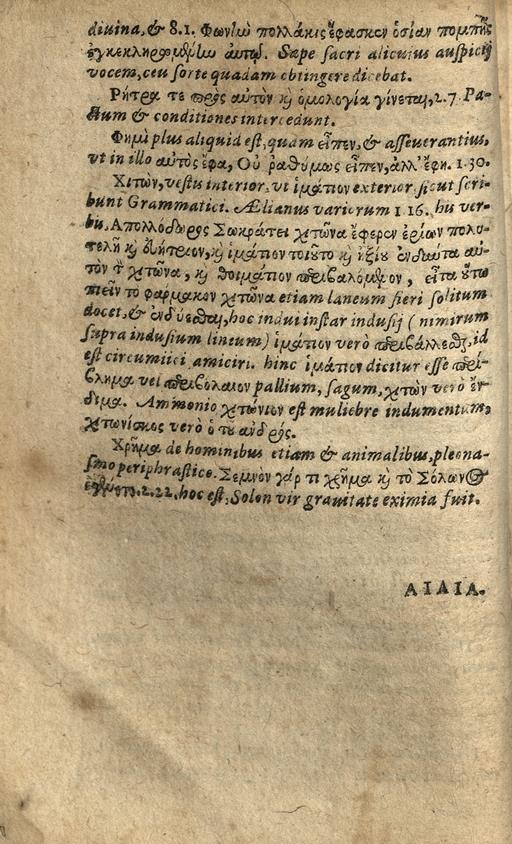 diuina, & 8.1. Φωνὴν πολλάκις ἔφασκεν ὁσίαν πομπῆς
ἐγκεκληρωμένην αὐτῷ. Sæpe sacri alicuius auspicij
vocem, ceu sorte quadam obtingere dicebat.
Ρήτρα τε πρὸς αὐτὸν καὶ ὁμολογία γίνεται, 2.7 Pa-
ctum & conditiones intercedunt.
Φημὶ plus aliquid est, quam εἶπεν, & asseuerantius,
vt in illo αὐτὸς ἔφα, Οὐ ῥαθύμως εἶπεν, ἀλλ' ἔφη. 1.30.
Χιτὼν, vestis interior, vt ἱμάτιον exterior sicut scri-
bunt Grammatici. Ælianus variorum 1 16. his ver-
bis, Απολλόδωρος Σωκράτει χιτῶνα ἔφερεν ἐρίων πολυ-
τελῆ καὶ εὐήτριον, καὶ ἱμάτιον τοιοῦτο καὶ ἠξίου ἐνδαύτα αὐ-
τὸν τὸν χιτῶνα, καὶ θοιμάτιον περιβαλόμενον, εἶτα οὕτω
πιεῖν τὸ φαρμακον χιτῶνα etiam laneum fieri solitum
docet, & ἐνδύεσθαι, hoc indui instar indusij (nimirum
supra indusium lineum) ἱμάτιον verò περιβάλλεσθαι, id
est circumiici amiciri. hinc ἱμάτιον dicitur esse περί-
βλημα vel περιβόλαιον pallium, sagum, χιτὼν verò ἔν-
διμα. Ammonio χιτώνιον est muliebre indumentum,
χιτωνίσκος verò ὁ τοῦ ἀνδρός.
Χρῆμα de hominibus etiam & animalibus, pleona-
smo periphrastico. Σεμνὸν γάρ τι χρῆμα καὶ τὸ Σόλωνος
2.22. hoc est, Solon vir grauitate eximia fuit.
ΑΙΛΙΑ.